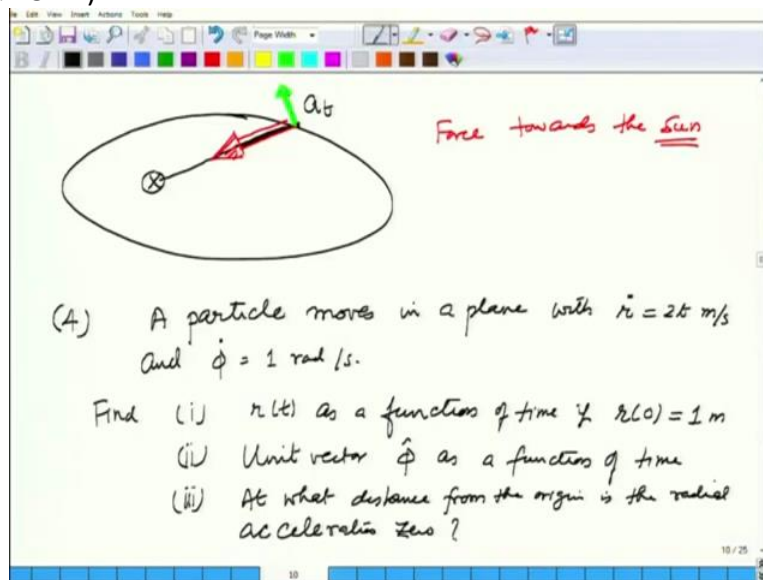 Edit View Insert Actions Tools Help
Page Width
B I
a_t
Force towards the Sun
(4) A particle moves in a plane with ṙ = 2t m/s
and φ̇ = 1 rad/s.
Find (i) r(t) as a function of time if r(0) = 1 m
(ii) Unit vector φ̂ as a function of time
(iii) At what distance from the origin is the radial
acceleration zero?
10 / 25
10